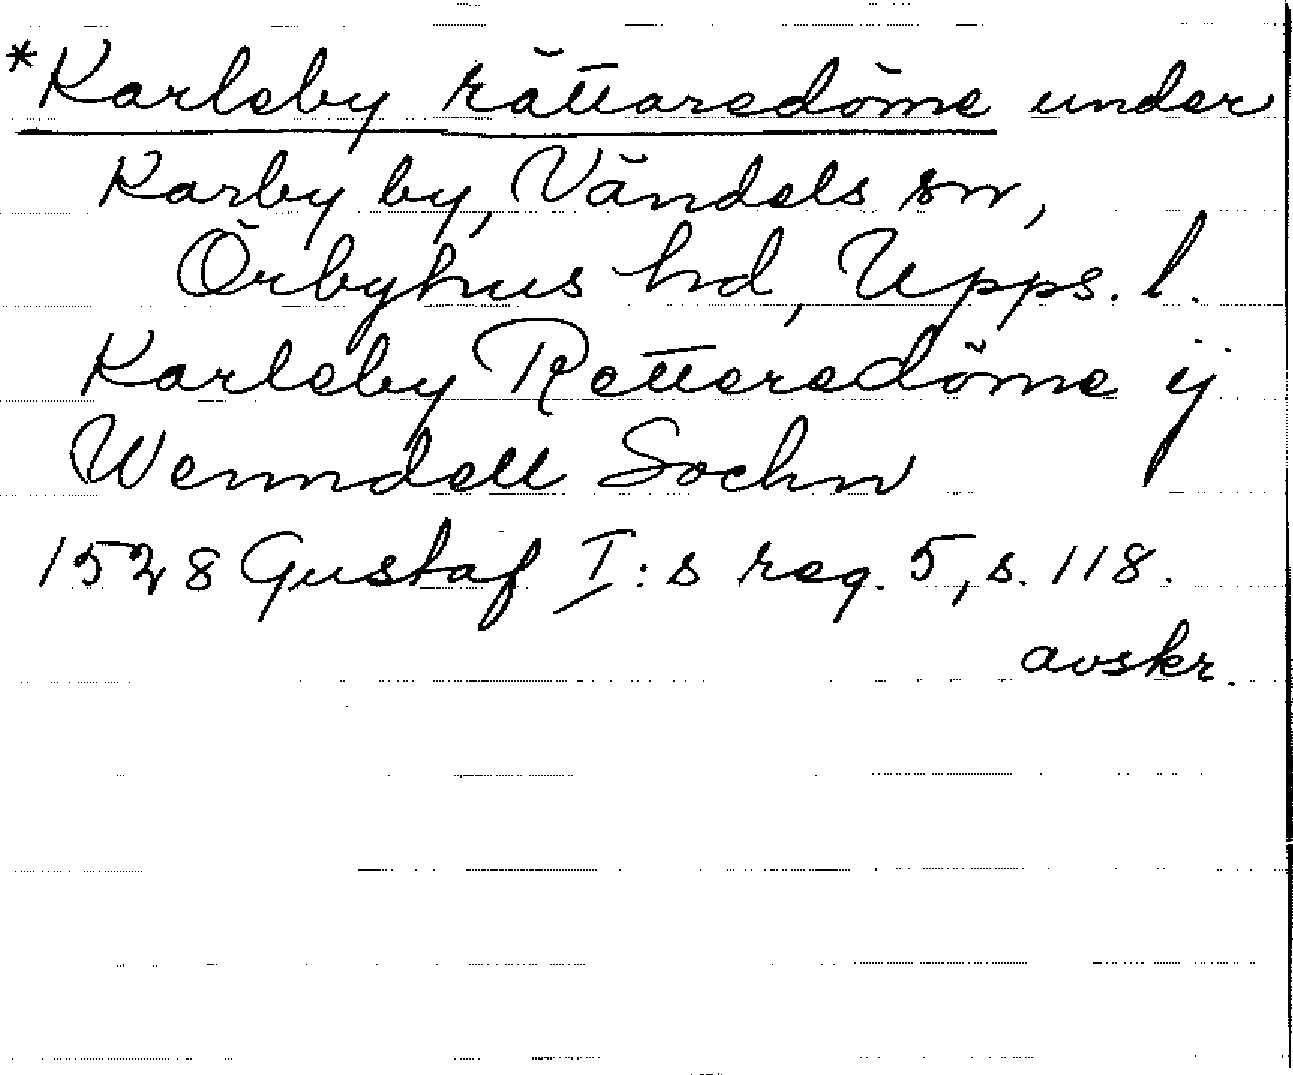 *Karleby rättaredöme under
Karby by, Vändels sn,
Örbyhus hd, Upps. l.
Karleby Retteredöme ij
Wenndell Sochn
1528 Gustaf I:s reg. 5, s. 118.
avskr.